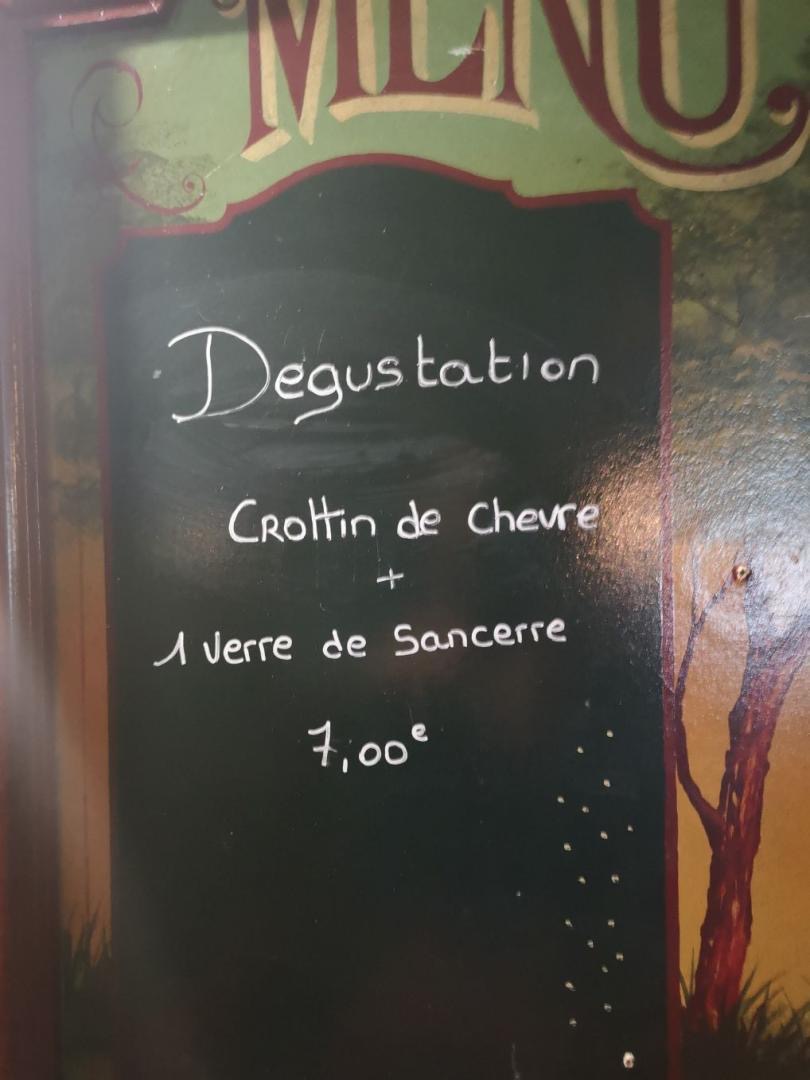 MENU
Degustation
Crottin de chevre
+
1 verre de Sancerre
7,00e